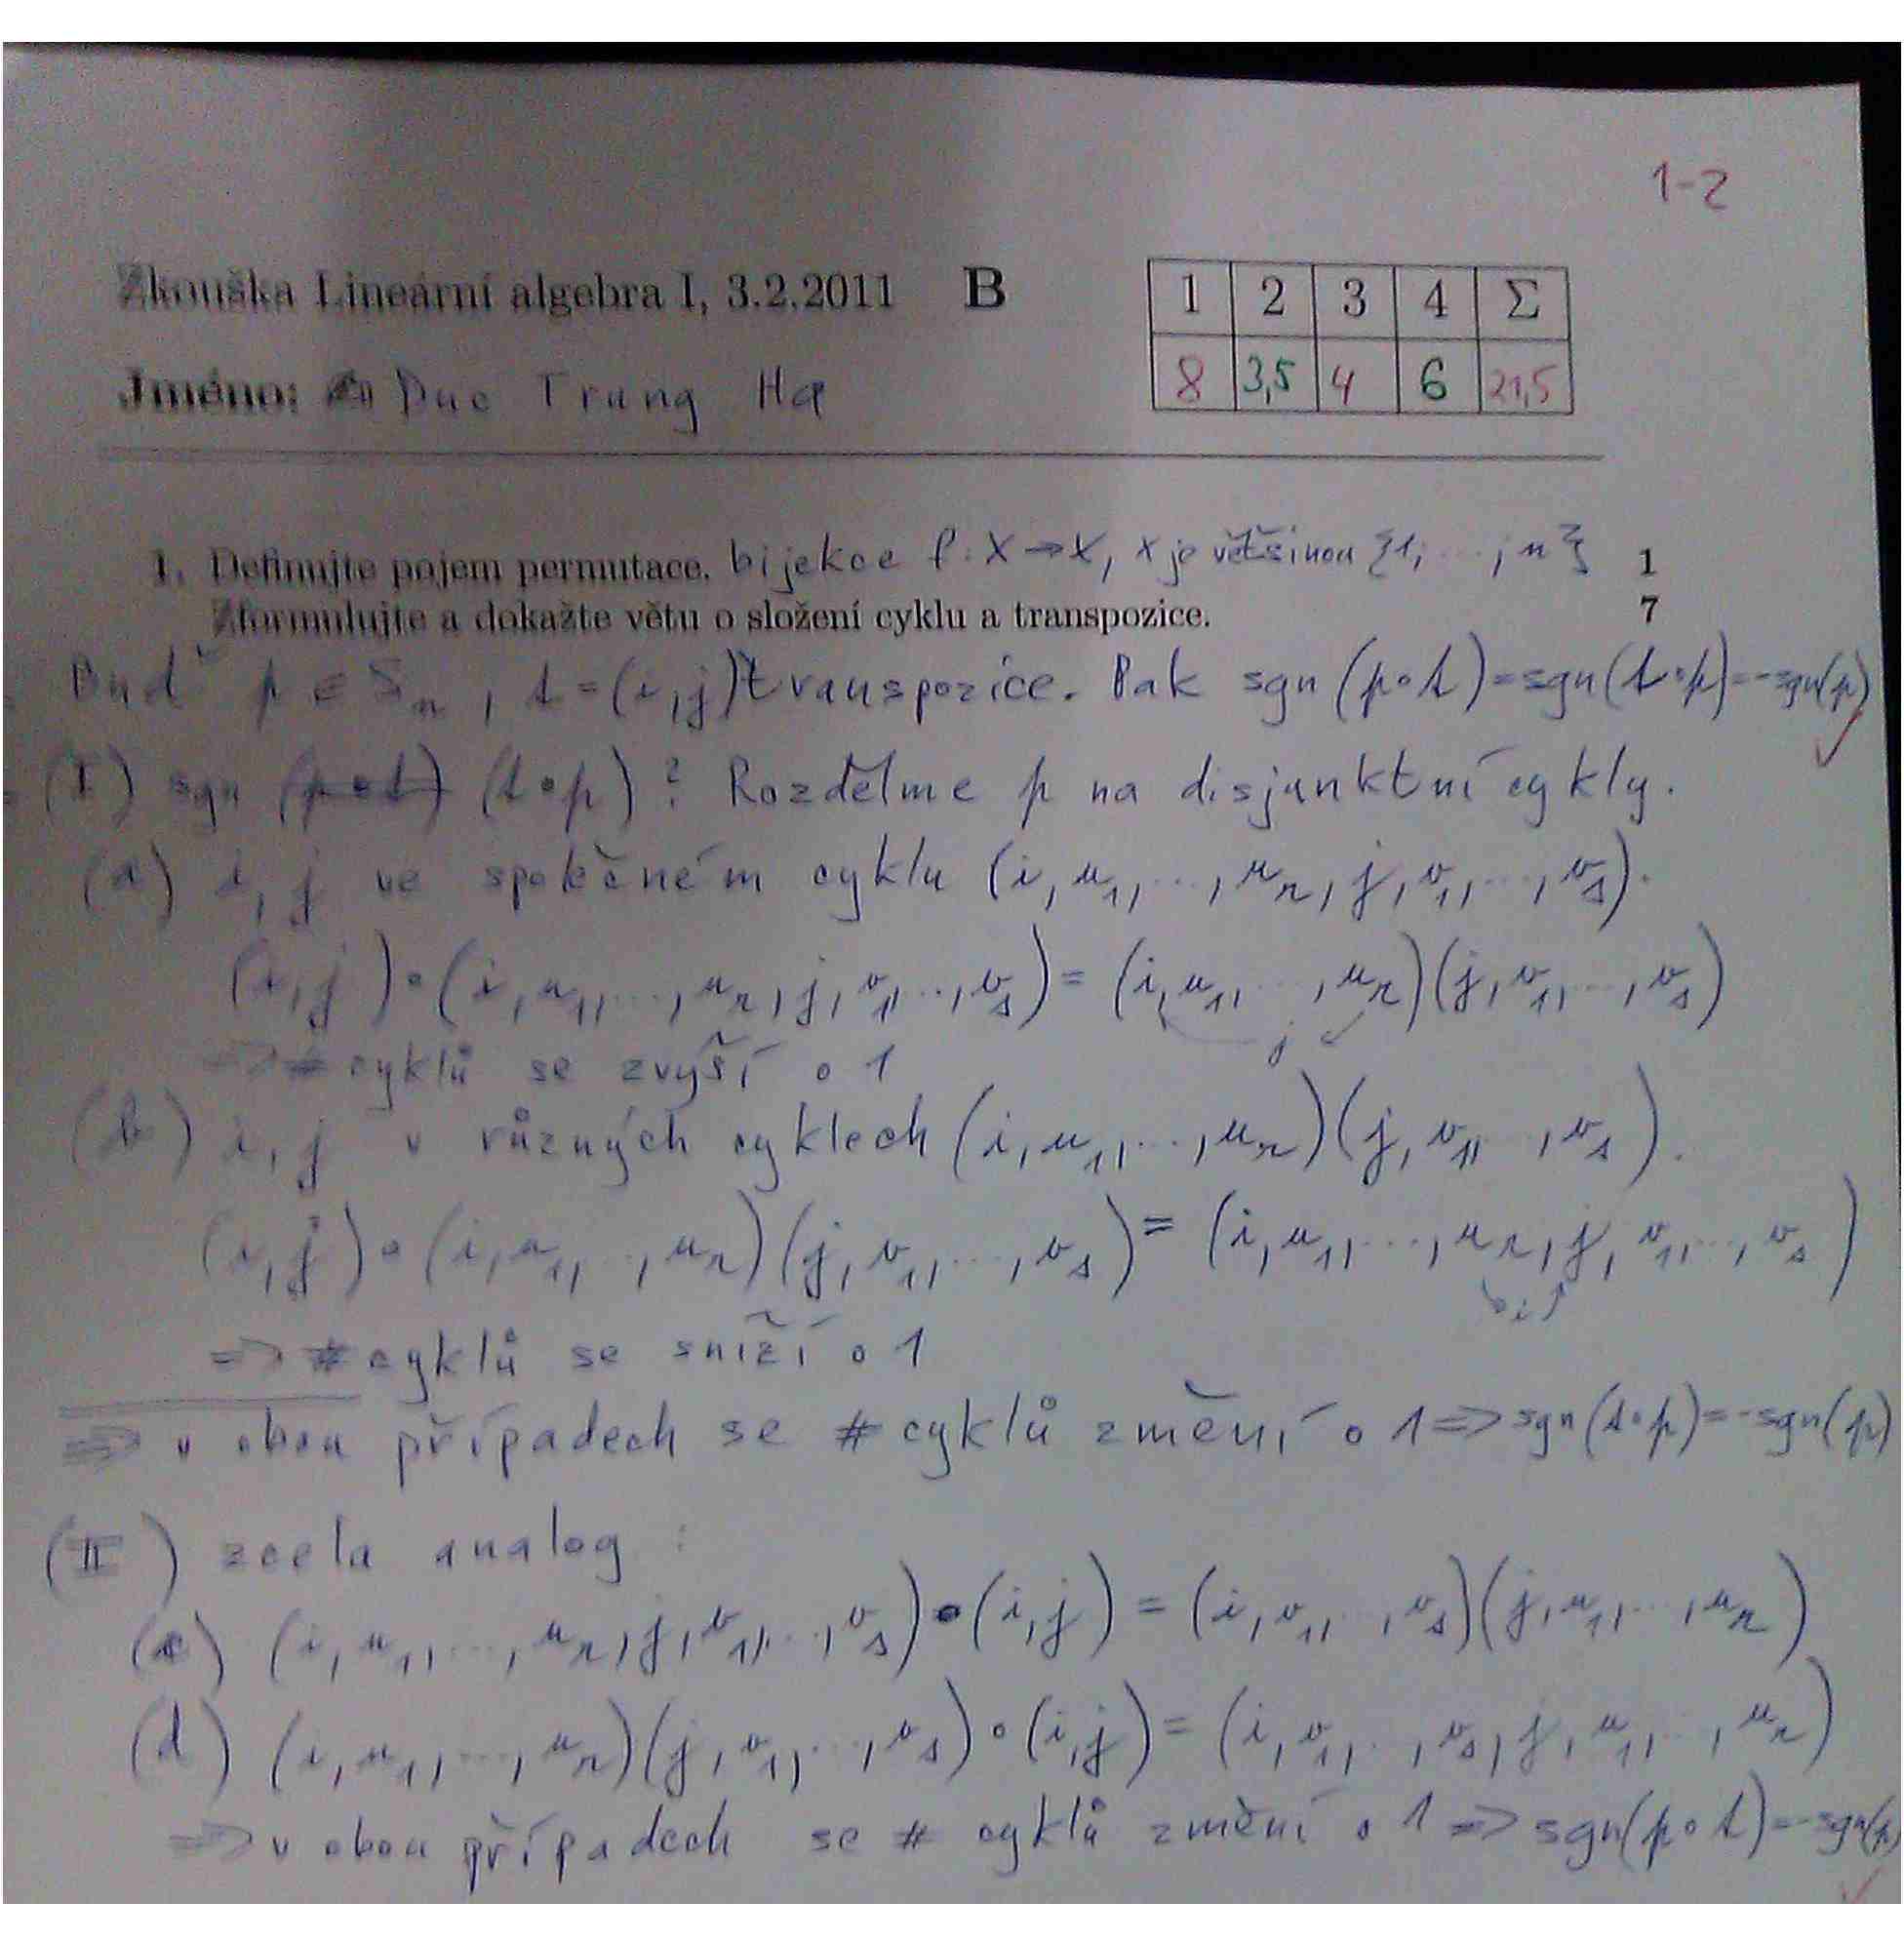 1-2
Zkouška Lineární algebra I, 3.2.2011 B
1 2 3 4 Σ
Jméno: Duc Trung Ha
8 3,5 4 6 21,5
1. Definujte pojem permutace. bijekce f: X → X, X je většinou {1, ..., n} 1
Zformulujte a dokažte větu o složení cyklu a transpozice. 7
Buď p ∈ Sₙ, t = (i,j) transpozice. Pak sgn (p∘t) = sgn (t∘p) = -sgn(p)
(I) sgn (p∘t) (t∘p)? Rozdělme p na disjunktní cykly.
(a) i, j ve společném cyklu (i, u₁, ..., uᵣ, j, v₁, ..., vₛ).
(i,j)∘(i, u₁, ..., uᵣ, j, v₁, ..., vₛ) = (i, u₁, ..., uᵣ)(j, v₁, ..., vₛ)
j
⇒ # cyklů se zvýší o 1
(b) i, j v různých cyklech (i, u₁, ..., uᵣ)(j, v₁, ..., vₛ).
(i,j)∘(i, u₁, ..., uᵣ)(j, v₁, ..., vₛ) = (i, u₁, ..., uᵣ, j, v₁, ..., vₛ)
i
⇒ # cyklů se sníží o 1
⇒ v obou případech se # cyklů změní o 1 ⇒ sgn(t∘p) = -sgn(p)
(II) zcela analog:
(c) (i, u₁, ..., uᵣ, j, v₁, ..., vₛ)∘(i,j) = (i, v₁, ..., vₛ)(j, u₁, ..., uᵣ)
(d) (i, u₁, ..., uᵣ)(j, v₁, ..., vₛ)∘(i,j) = (i, v₁, ..., vₛ, j, u₁, ..., uᵣ)
⇒ v obou případech se # cyklů změní o 1 ⇒ sgn(p∘t) = -sgn(p)